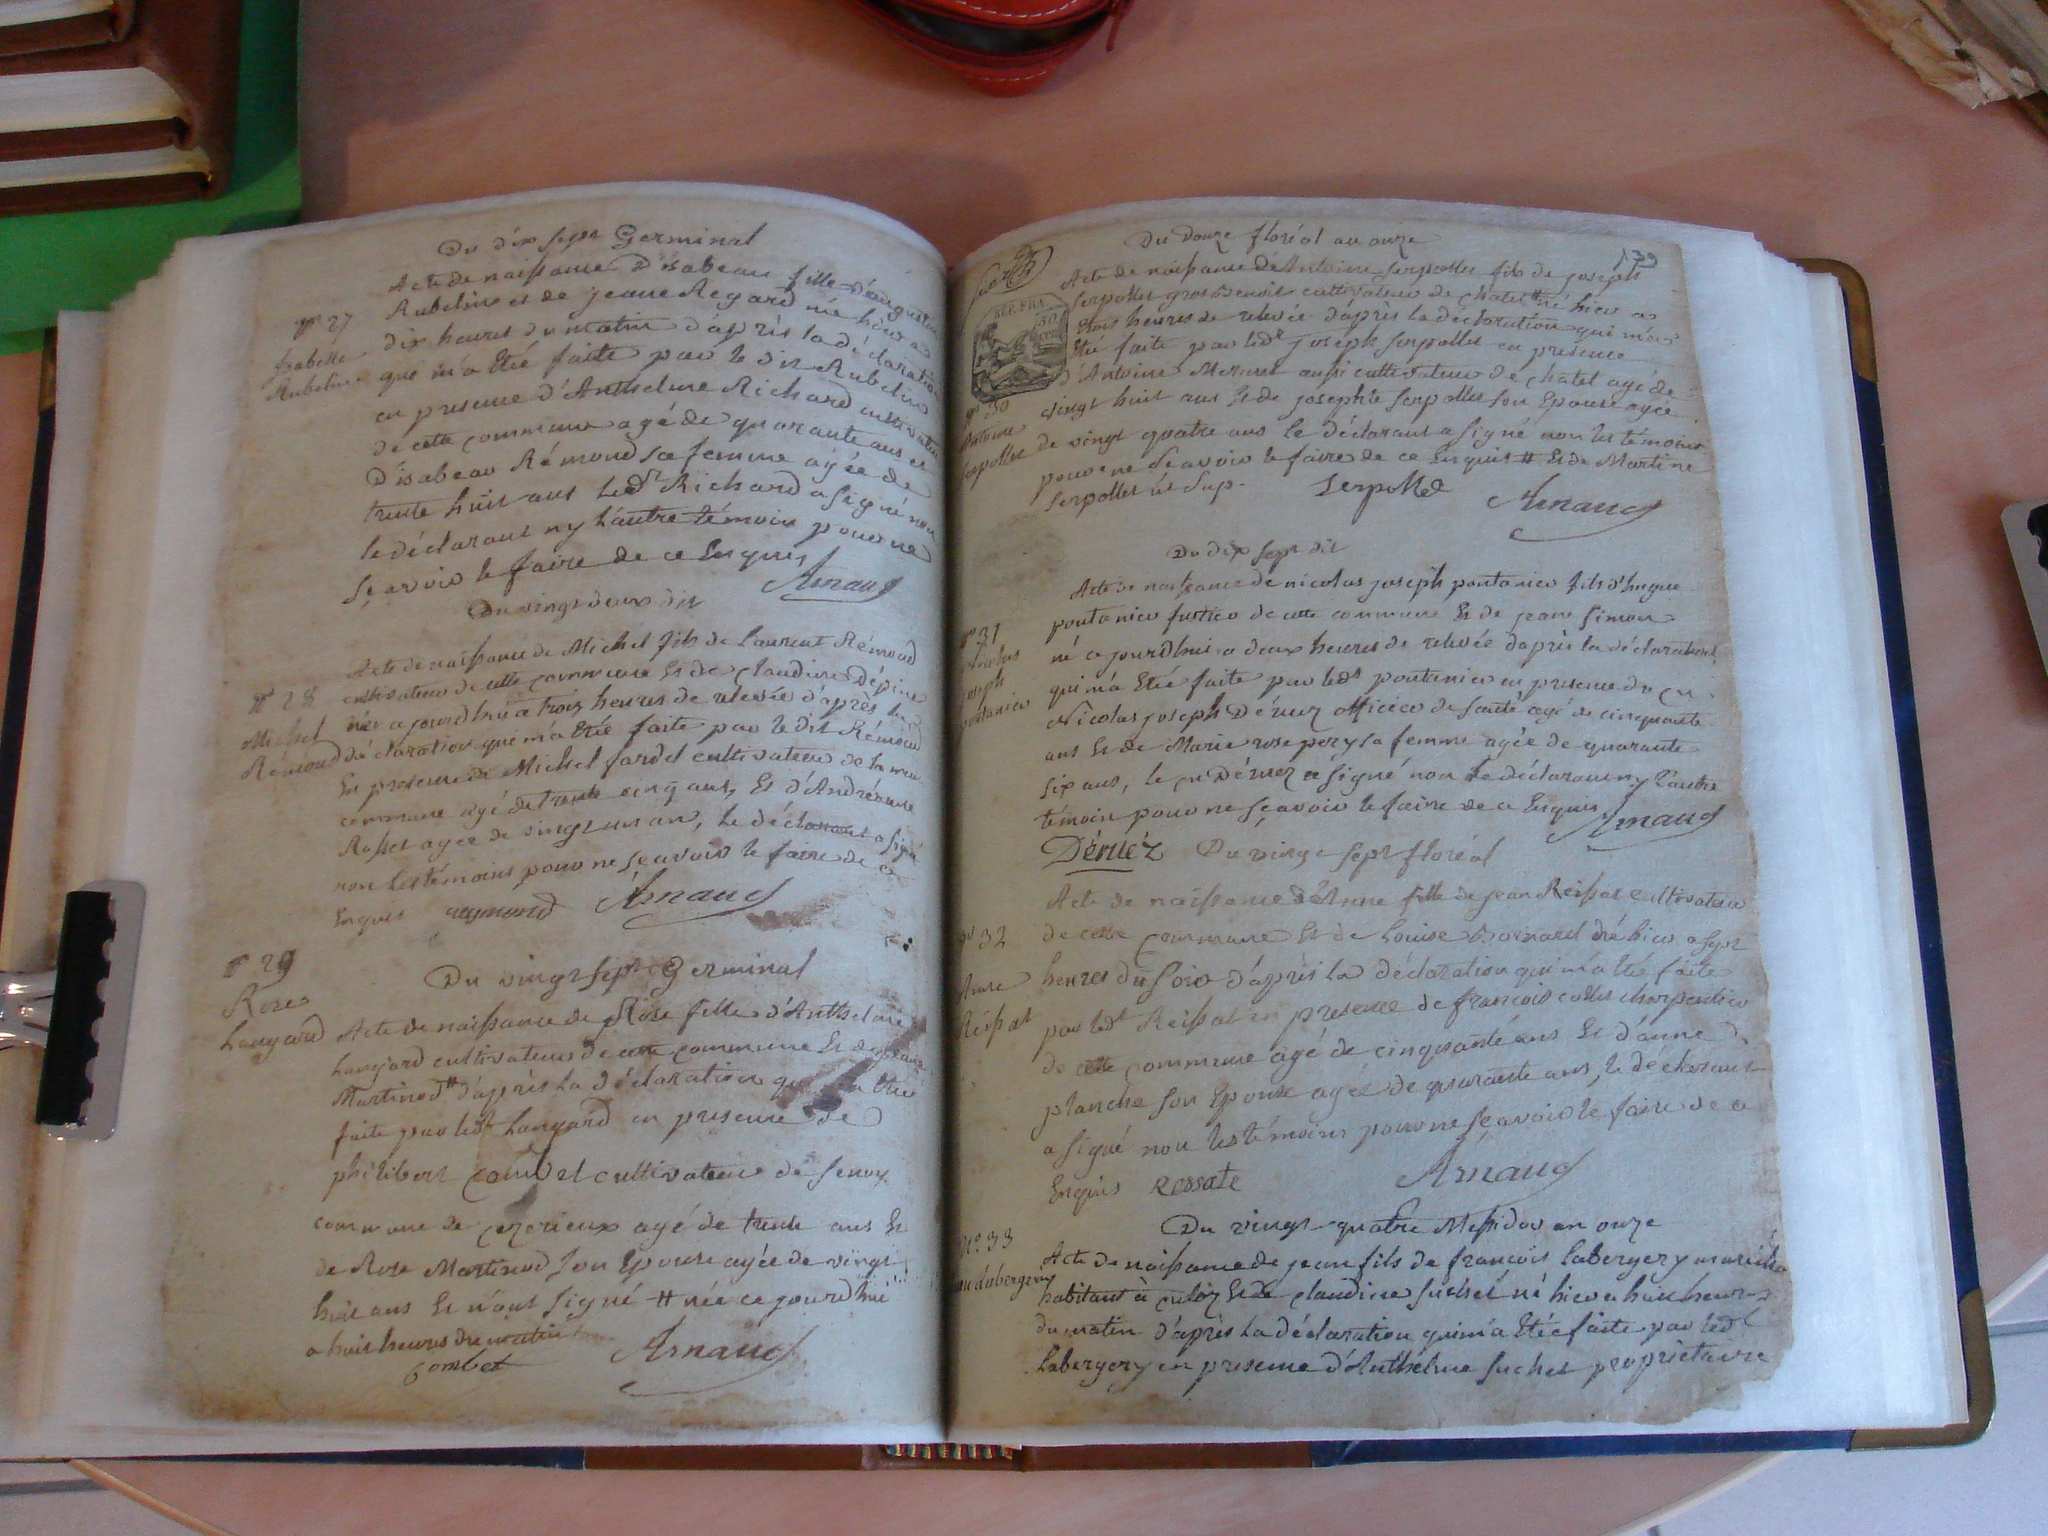 Du dix sept Germinal
Acte de naissance d'isabeau fille d'augustin
Rubelin et de jeane Regard née hier a
N° 27
Isabelle
Rubelin
dix heures du matin d'après la déclaration
qui m'a Etée faite par le dit Rubelin
en presence d'Anthelme Richard cultivateur
de cette commune agé de quarante ans et
D'isabeau Rémond sa femme agée de
trente huit ans ledt Richard a signé non
le déclarant ny l'autre témoin pour ne
sçavoir le faire de ce Enquis
Arnaud
Du vingt deux dit
Acte de naissance de Michel fils de Laurent Rémond
cultivateur de cette commune Et de Claudine Dépine
N° 28
Michel
Rémond
née a jourdhui a trois heures de relevée d'après la
déclaration qui m'a Etée faite par le dit Rémond
En presence de Michel fardel cultivateur de la même
commune agé de trente cinq ans, Et d'Andréanne
Rosset agée de vingt un an, le déclarant a signé
non les témoins pour ne sçavoir le faire de ce
Enquis reymond Arnaud
N° 29
Rose
Langard
Du vingt sept Germinal
Acte de naissance de Rose fille d'Anthelme
Langard cultivateur de cette commune Et de
Martinod # d'après la déclaration qui m'a Etée
faite par ledt Langard en presence de
philibert Combet cultivateur de
commune de Ceyzerieux agé de trente ans Et
de Rose Martinod son Epouse agée de vingt
huit ans Et n'ont signé # née ce jourdhui
a huit heures du matin
Combet Arnaud
139
Du Douze floréal an onze
REP. FRA.
50
Acte de naissance d'Antoine serpollet fils de joseph
Serpollet gros benoit cultivateur de chatel # né hier a
trois heures de relevée d'après la déclaration qui m'a
Eté faite par ledt joseph serpollet en presence
d'Antoine Mermet aussi cultivateur de chatel agé de
N° 30
Antoine
Serpollet
vingt huit ans Et de josephte serpollet son Epouse agée
de vingt quatre ans le déclarant a signé non les témoins
pour ne sçavoir le faire de ce Enquis # Et de Martine
serpollet
serpollet Arnaud
Du dix sept dit
Acte de naissance de nicolas joseph pontanier fils d'hugue
pontanier de cette commune Et de jeane simon
N° 31
Nicolas
joseph
pontanier
né a jourdhui a deux heures de relevée d'après la déclaration
qui m'a Etée faite par ledt pontanier en presence du cn
Nicolas joseph Déruez officier de santé agé de cinquante
ans Et de Marie rose pery sa femme agée de quarante
six ans, le cn Déruez a signé non le déclarant ny l'autre
témoin pour ne sçavoir le faire de ce Enquis
Arnaud
Déruéz
Du vingt sept floréal
Acte de naissance d'Anne fille de jean Reissat cultivateur
N° 32
Anne
Reissat
de cette commune Et de Louise Bornard née hier a sept
heures du soir d'après la déclaration qui m'a Eté faite
par ledt Reissat en presence de françois collet charpentier
de cette commune agé de cinquante ans Et d'anne
planche son Epouse agée de quarante ans, le déclarant
a signé non les témoins pour ne sçavoir le faire de ce
Enquis Rossate Arnaud
Du vingt quatre Messidor an onze
N° 33
jean labergery
Acte de naissance de jean fils de françois labergery maréchal
habitant à culoz Et de claudine suchet né hier a huit heures
du matin d'après la déclaration qui m'a Etée faite par ledt
labergery en presence d'Anthelme suchet propriétaire